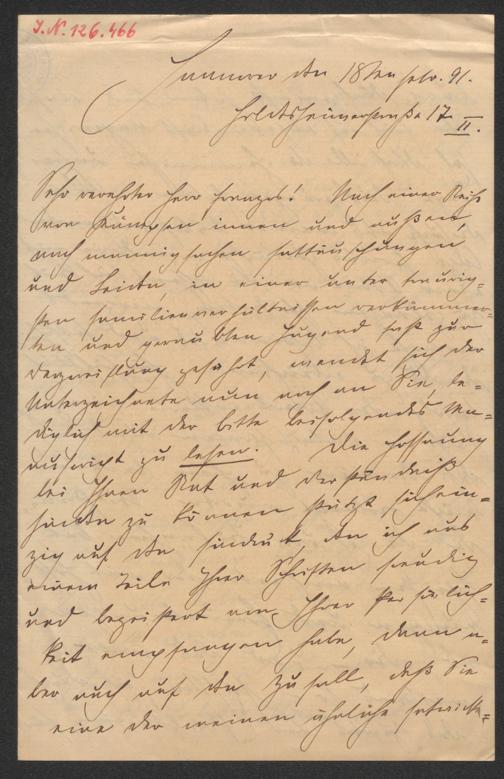 I.N. 126.466
Hannover den 18ten Febr. 91.
Hildesheimerstraße 17 II.
Sehr verehrter Herr Franzos! Nach einer Reihe
von Kämpfen innen und außen,
nach mannigfachen Enttäuschungen
und Leiden, in einer unter traurig-
sten Familienverhältnissen verkümmer-
ten und geraubten Jugend fast zur
Verzweiflung geführt, wendet sich der
Unterzeichnete nun noch an Sie le-
diglich mit der Bitte beifolgendes Ma-
nuscript zu lesen. Die Hoffnung
bei Ihnen Rat und Verständniß
finden zu können stützt sich ein-
zig auf den Eindruck, den ich aus
einem Teile Ihrer Schriften freudig
und begeistert von Ihrer Persönlich-
keit empfangen habe, dann a-
ber auch auf den Zufall, daß Sie
eine der meinen ähnliche Entwicke-